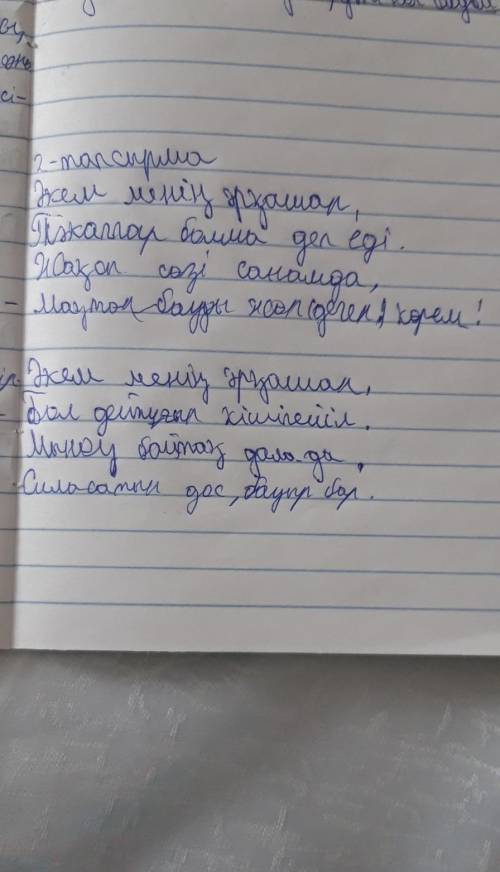 сі-
2-тапсырма
Әкем менің әрқашан,
Тәкаппар болма деп еді.
Жақсы сөзі санамда,
- Мақтан бауды жөн (деген) көрем!
Әкем менің әрқашан,
- Бол дейтұғын кішіпейіл.
Мынау байтақ далада,
Сыласатын дос, бауыр бар.